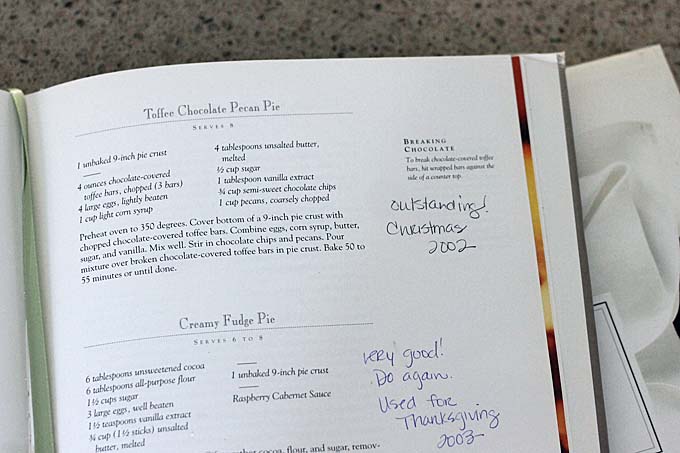 Toffee Chocolate Pecan Pie
SERVES 8
1 unbaked 9-inch pie crust
4 ounces chocolate-covered
toffee bars, chopped (3 bars)
4 large eggs, lightly beaten
1 cup light corn syrup
4 tablespoons unsalted butter,
melted
½ cup sugar
1 tablespoon vanilla extract
¾ cup semi-sweet chocolate chips
1 cup pecans, coarsely chopped
Preheat oven to 350 degrees. Cover bottom of a 9-inch pie crust with
chopped chocolate-covered toffee bars. Combine eggs, corn syrup, butter,
sugar, and vanilla. Mix well. Stir in chocolate chips and pecans. Pour
mixture over broken chocolate-covered toffee bars in pie crust. Bake 50 to
55 minutes or until done.
BREAKING
CHOCOLATE
To break chocolate-covered toffee
bars, hit wrapped bars against the
side of a counter top.
outstanding!
Christmas
2002
Creamy Fudge Pie
SERVES 6 TO 8
6 tablespoons unsweetened cocoa
6 tablespoons all-purpose flour
1½ cups sugar
3 large eggs, well beaten
1½ teaspoons vanilla extract
¾ cup (1½ sticks) unsalted
butter, melted
1 unbaked 9-inch pie crust
Raspberry Cabernet Sauce
very good!
Do again.
Used for
Thanksgiving
2003
cocoa, flour, and sugar, remov-